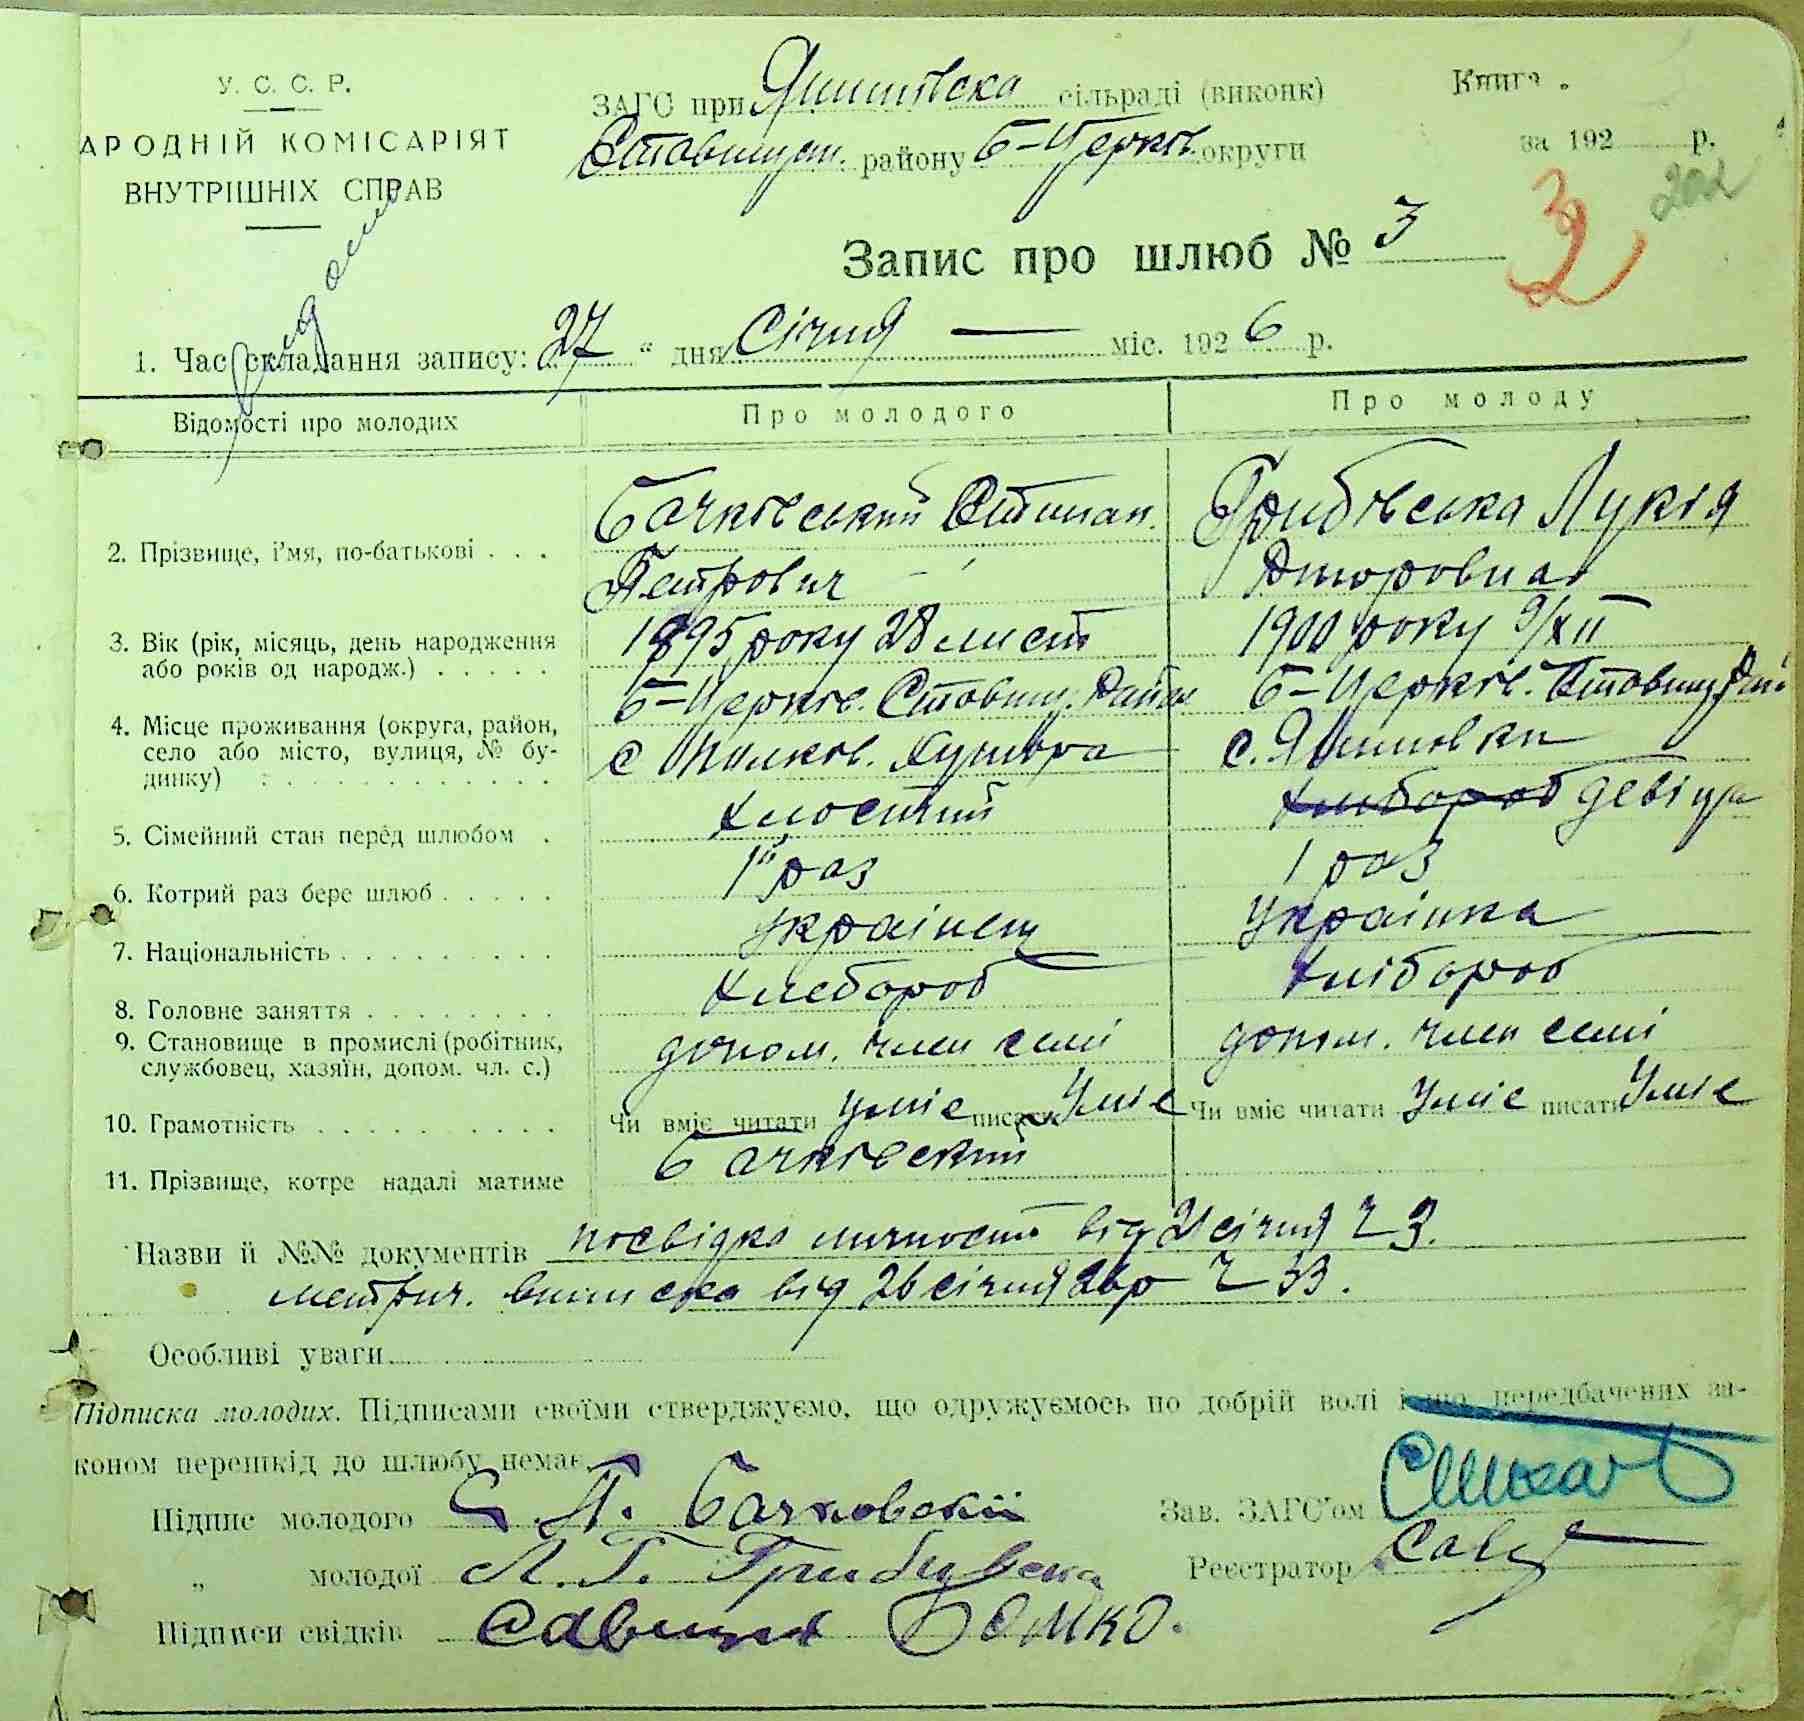 У. С. С. Р.
АРОДНІЙ КОМІСАРІЯТ
ВНУТРІШНІХ СПРАВ
ЗАГС при сільраді (виконк)
Ставищан. району Б-Церків округи
Книга
за 192 р.
202
Запис про шлюб № 3
3
1. Час складання запису: 27 " дня Січня — міс. 1926 р.
Відомості про молодих
Про молодого
Про молоду
2. Прізвище, і'мя, по-батькові . . .
Бачківський Степан.
Петрович
Грибівська Лукія
3. Вік (рік, місяць, день народження
або років од народж.) . . . . .
1895 року 28 лист
1900 року 9/XII
4. Місце проживання (округа, район,
село або місто, вулиця, № бу-
динку) . . . . . . . . . .
Б-Церків. Ставищ. Район
с Хутора
Б-Церків. Ставищ Рай
с. Яшновки
5. Сімейний стан перед шлюбом .
холостий
хлібороб девіця
6. Котрий раз бере шлюб . . . . .
1й раз
1 раз
7. Національність . . . . . . . . .
українец
українка
8. Головне заняття . . . . . . . .
хлебороб
хлібороб
9. Становище в промислі (робітник,
службовец, хазяїн, допом. чл. с.)
допом. член семі
допом. член семі
10. Грамотність . . . . . . . . . .
Чи вміє читати уміє писати уміє
Чи вміє читати уміє писати уміє
11. Прізвище, котре надалі матиме
Бачківский
Назви й №№ документів посвідка личности від 21 січня Ч 3.
метрич. виписка від 26 січня 26р Ч 33.
Особливі уваги
Підписка молодих. Підписами своїми стверджуємо, що одружуємось по добрій волі і що передбачених за-
коном перешкід до шлюбу немає.
Підпис молодого С. П. Бачковскій
Зав. ЗАГС'ом
" молодої Л. Г.
Реєстратор
Підписи свідків